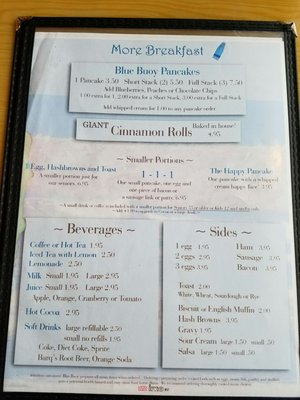 More Breakfast
Blue Buoy Pancakes
1 Pancake 3.50 Short Stack (2) 5.50 Full Stack (3) 7.50
Add Blueberries, Peaches or Chocolate Chips
1.00 extra for 1, 2.00 extra for a Short Stack, 3.00 extra for a Full Stack
Add whipped cream for 1.00 to any pancake order
GIANT Cinnamon Rolls Baked in house!
4.95
~ Smaller Portions ~
1 Egg, Hashbrowns and Toast
A smaller portion just for
our seniors. 6.95
1 - 1 - 1
One small pancake, one egg and
one piece of bacon or
a sausage link or patty. 6.95
The Happy Pancake
One pancake with a whipped
cream happy face! 3.95
~ Beverages ~
Coffee or Hot Tea 1.95
Iced Tea with Lemon 2.50
Lemonade 2.50
Milk Small 1.95 Large 2.95
Juice Small 1.95 Large 2.95
Apple, Orange, Cranberry or Tomato
Hot Cocoa 2.95
Soft Drinks large refillable 2.50
small no refills 1.95
Coke, Diet Coke, Sprite
Barq's Root Beer, Orange Soda
~ Sides ~
1 egg 1.95 Ham 3.95
2 eggs 2.95 Sausage 3.95
3 eggs 3.95 Bacon 3.95
Toast 2.00
White, Wheat, Sourdough or Rye
Biscuit or English Muffin 2.00
Hash Browns 3.95
Gravy 1.95
Sour Cream large 1.50 small .50
Salsa large 1.50 small .50